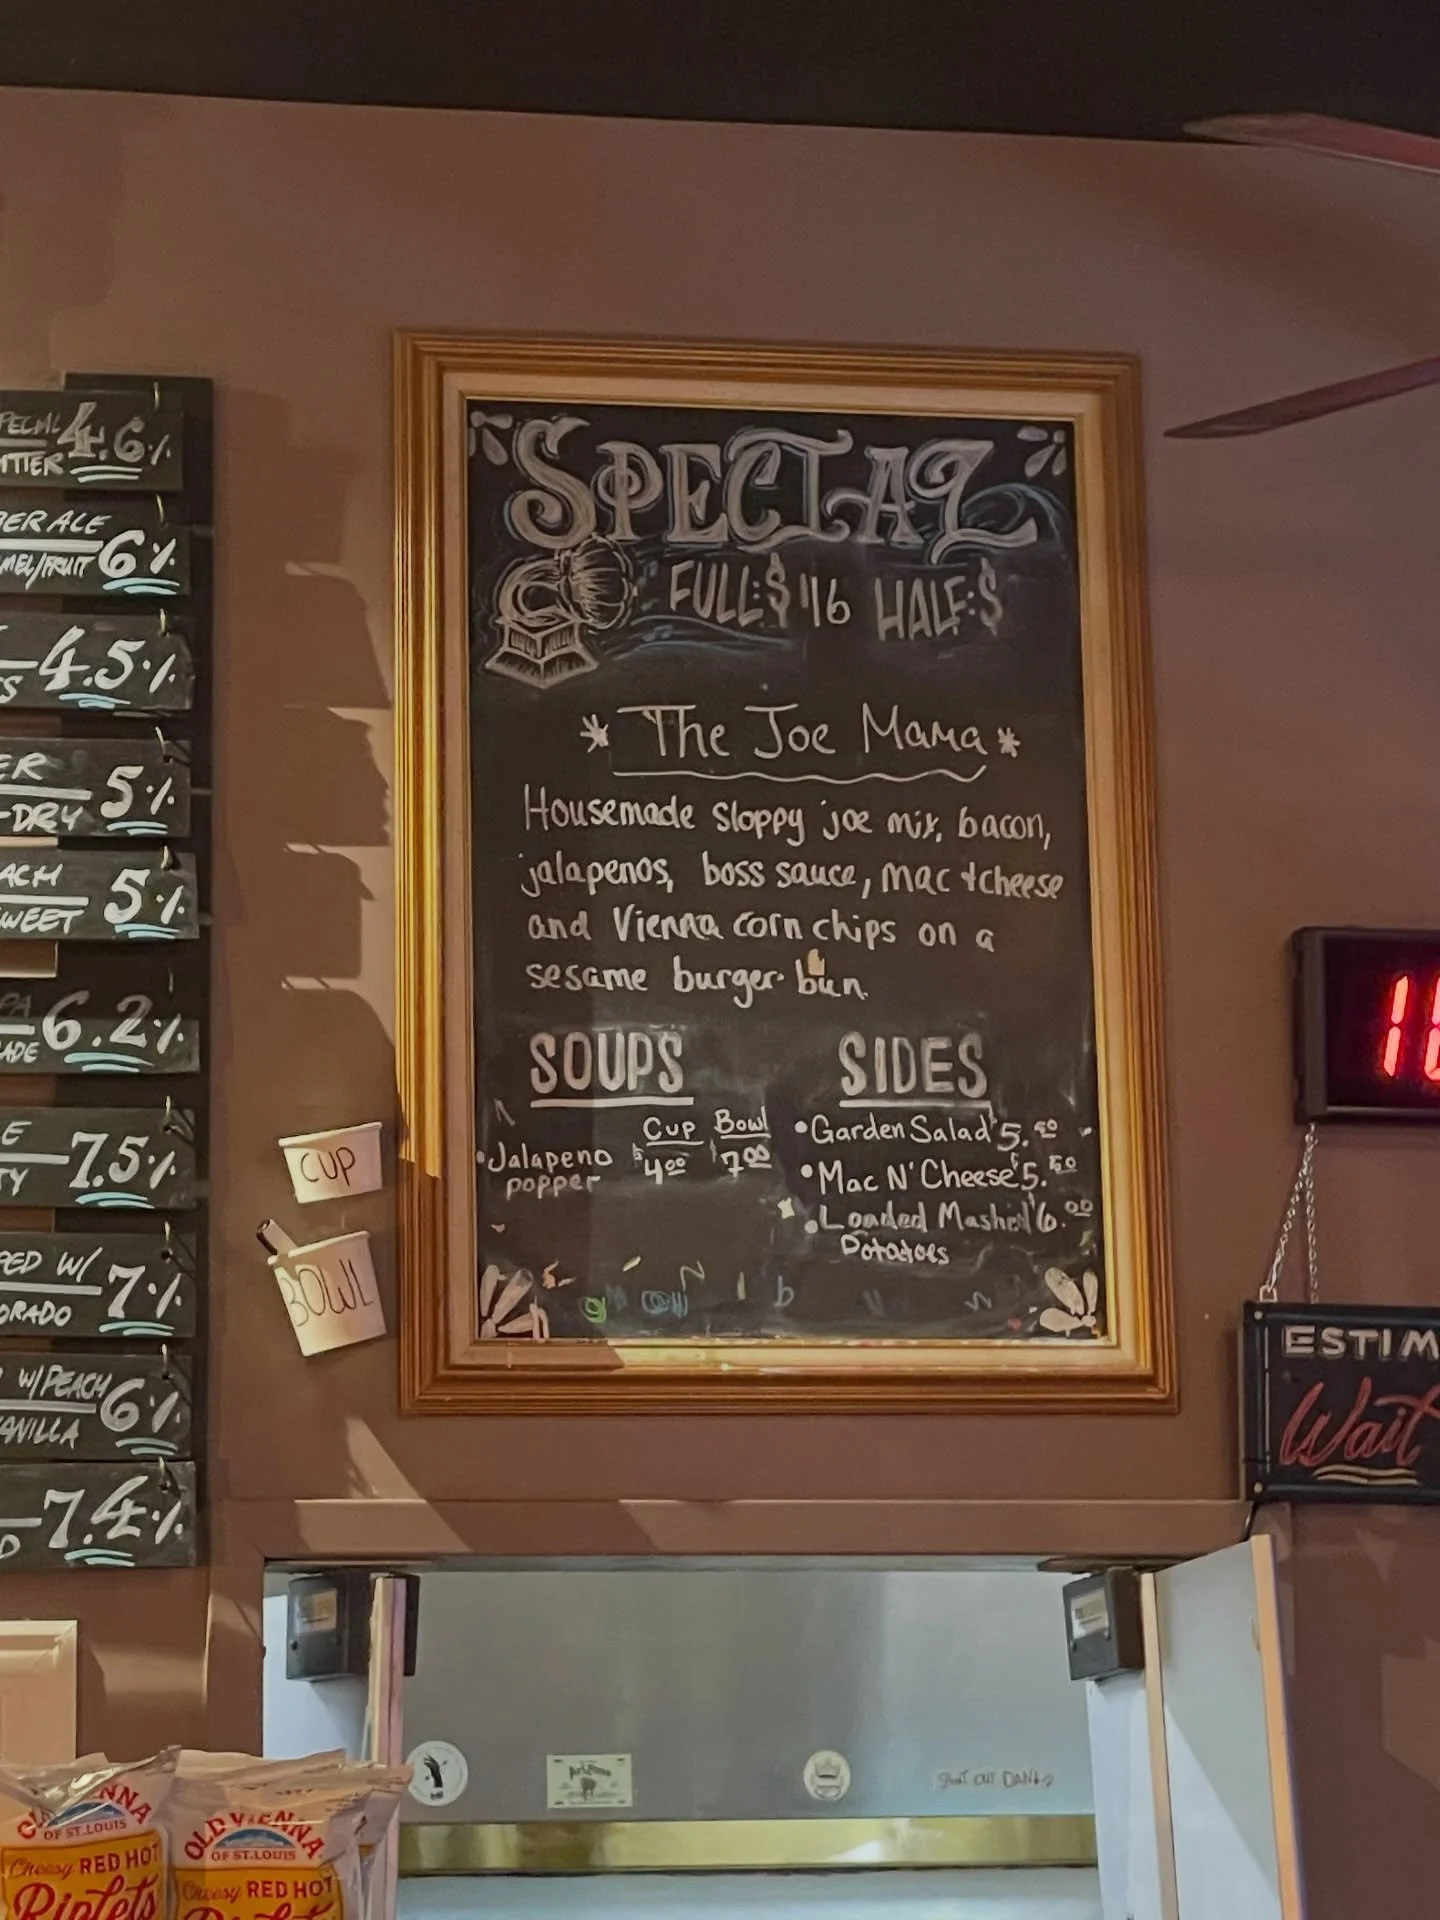 SPECIAL
FULL:$16 HALF:$
* The Joe Mama *
Housemade sloppy joe mix, bacon,
jalapenos, boss sauce, mac + cheese
and Vienna corn chips on a
sesame burger bun.
SOUPS
Cup Bowl
•Jalapeno $4.00 $7.00
popper
SIDES
•Garden Salad $5.50
•Mac N' Cheese $5.50
•Loaded Mashed $6.00
Potatoes
CUP
BOWL
4.6%
6%
MEL/FRUIT
4.5%
5%
-DRY
5%
6.2%
7.5%
PED W/
7%
W/PEACH
6%
7.4%
ESTIM
Wait
OLD VIENNA
OF ST. LOUIS
Cheesy RED HOT
Riplets
OLD VIENNA
OF ST. LOUIS
Cheesy RED HOT